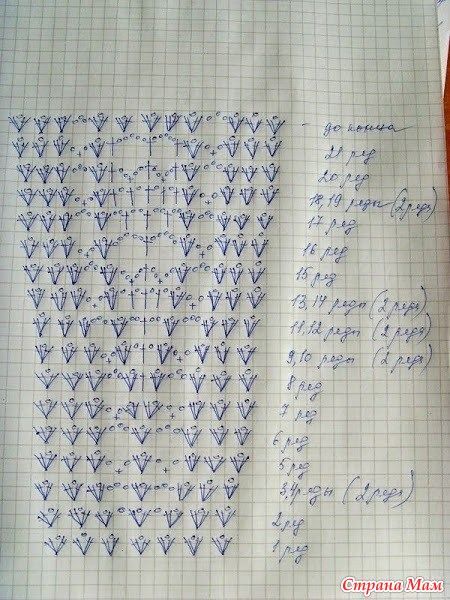 - до конца
21 ред
20 ред
18,19 реды (2 реда)
17 ред
16 ред
15 ред
13,14 реды (2 реда)
11,12 реды (2 реда)
9,10 реды (2 реда)
8 ред
7 ред
6 ред
5 ред
3,4 реды (2 реда)
2 ред
1 ред
Страна Мам